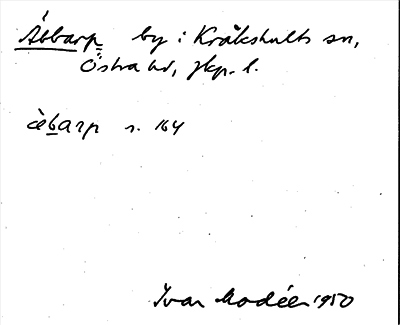 Åbbarp by i Kråkshults sn,
Östra hd, Jkp. l.
èbarp s. 164
Ivar Modéer 1950